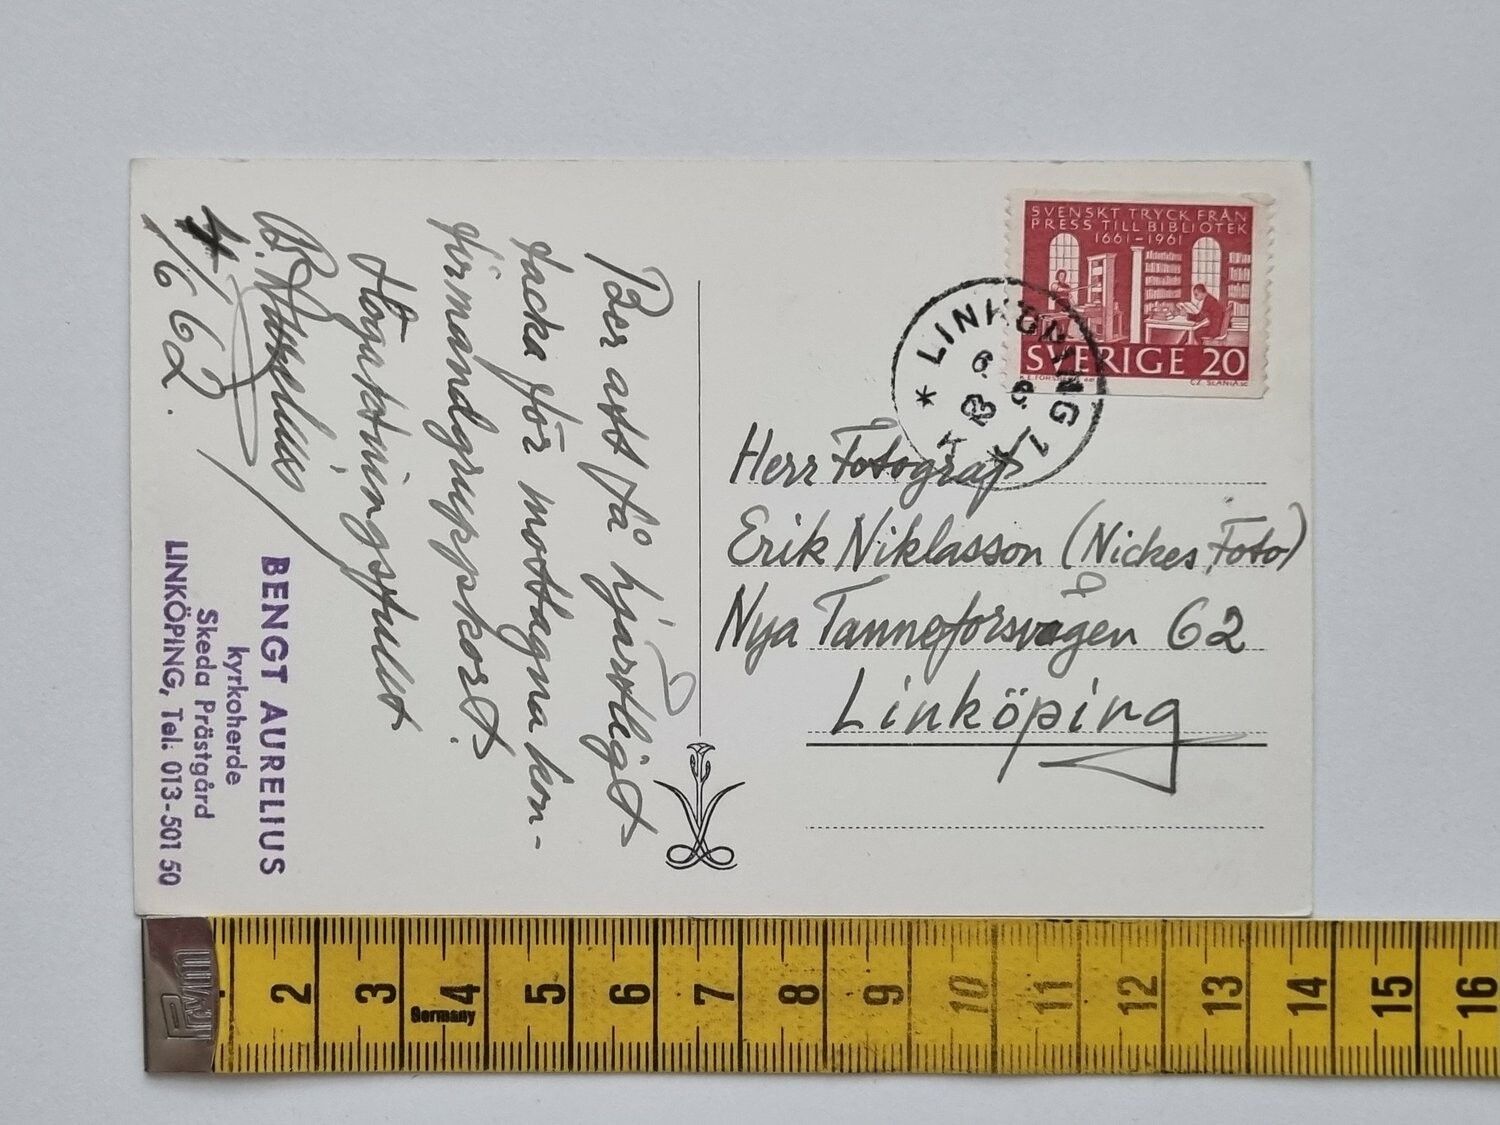 Ber att få hjärtligt
tacka för mottagna kon-
firmandgruppskort.
Högaktningsfullt
B. Aurelius
4/6 62.
BENGT AURELIUS
kyrkoherde
Skeda Prästgård
LINKÖPING, Tel. 013-501 50
SVENSKT TRYCK FRÅN
PRESS TILL BIBLIOTEK
1661-1961
SVERIGE 20
CZ. SLANIA SC
LINKÖPING 1
Herr Fotograf
Erik Niklasson (Nickes Foto)
Nya Tanneforsvägen 62
Linköping
2
3
4
Germany
5
6
7
8
9
10
11
12
13
14
15
16